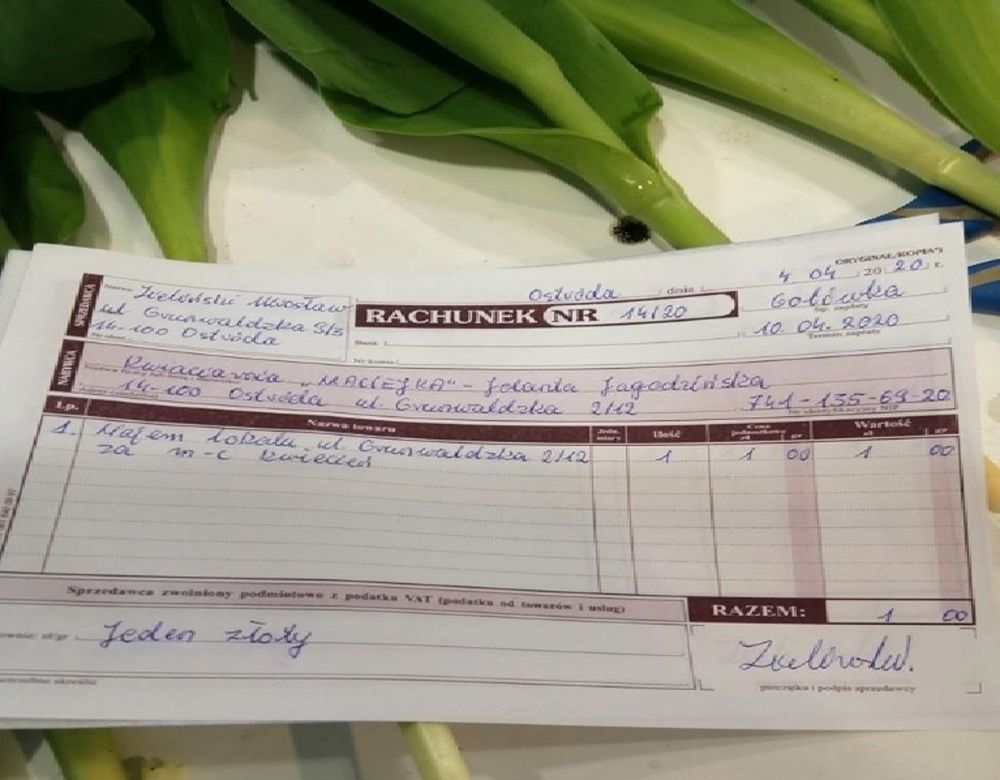 ORYGINAŁ/KOPIA*)
Ostróda dnia 4 04 2020 r.
SPRZEDAWCA
Nazwa: Zieliński Mirosław
ul. Grunwaldzka 3/3
14-100 Ostróda
RACHUNEK NR 14/20
Gotówka
Sp. zapłaty
Bank:
10. 04. 2020
Termin zapłaty
Nr konta:
NABYWCA
Kwiaciarnia „MACIEJKA" - Jolanta Jagodzińska
14-100 Ostróda ul. Grunwaldzka 2/12 741-135-69-20
Nr identyfikacyjny NIP
Lp. Nazwa towaru Jedn. miary Ilość Cena jednostkowa zł gr Wartość zł gr
1. Najem lokalu ul. Grunwaldzka 2/12 1 1 00 1 00
za m-c kwiecień
Sprzedawca zwolniony podmiotowo z podatku VAT (podatku od towarów i usług)
RAZEM: 1 00
Jeden złoty
pieczątka i podpis sprzedawcy